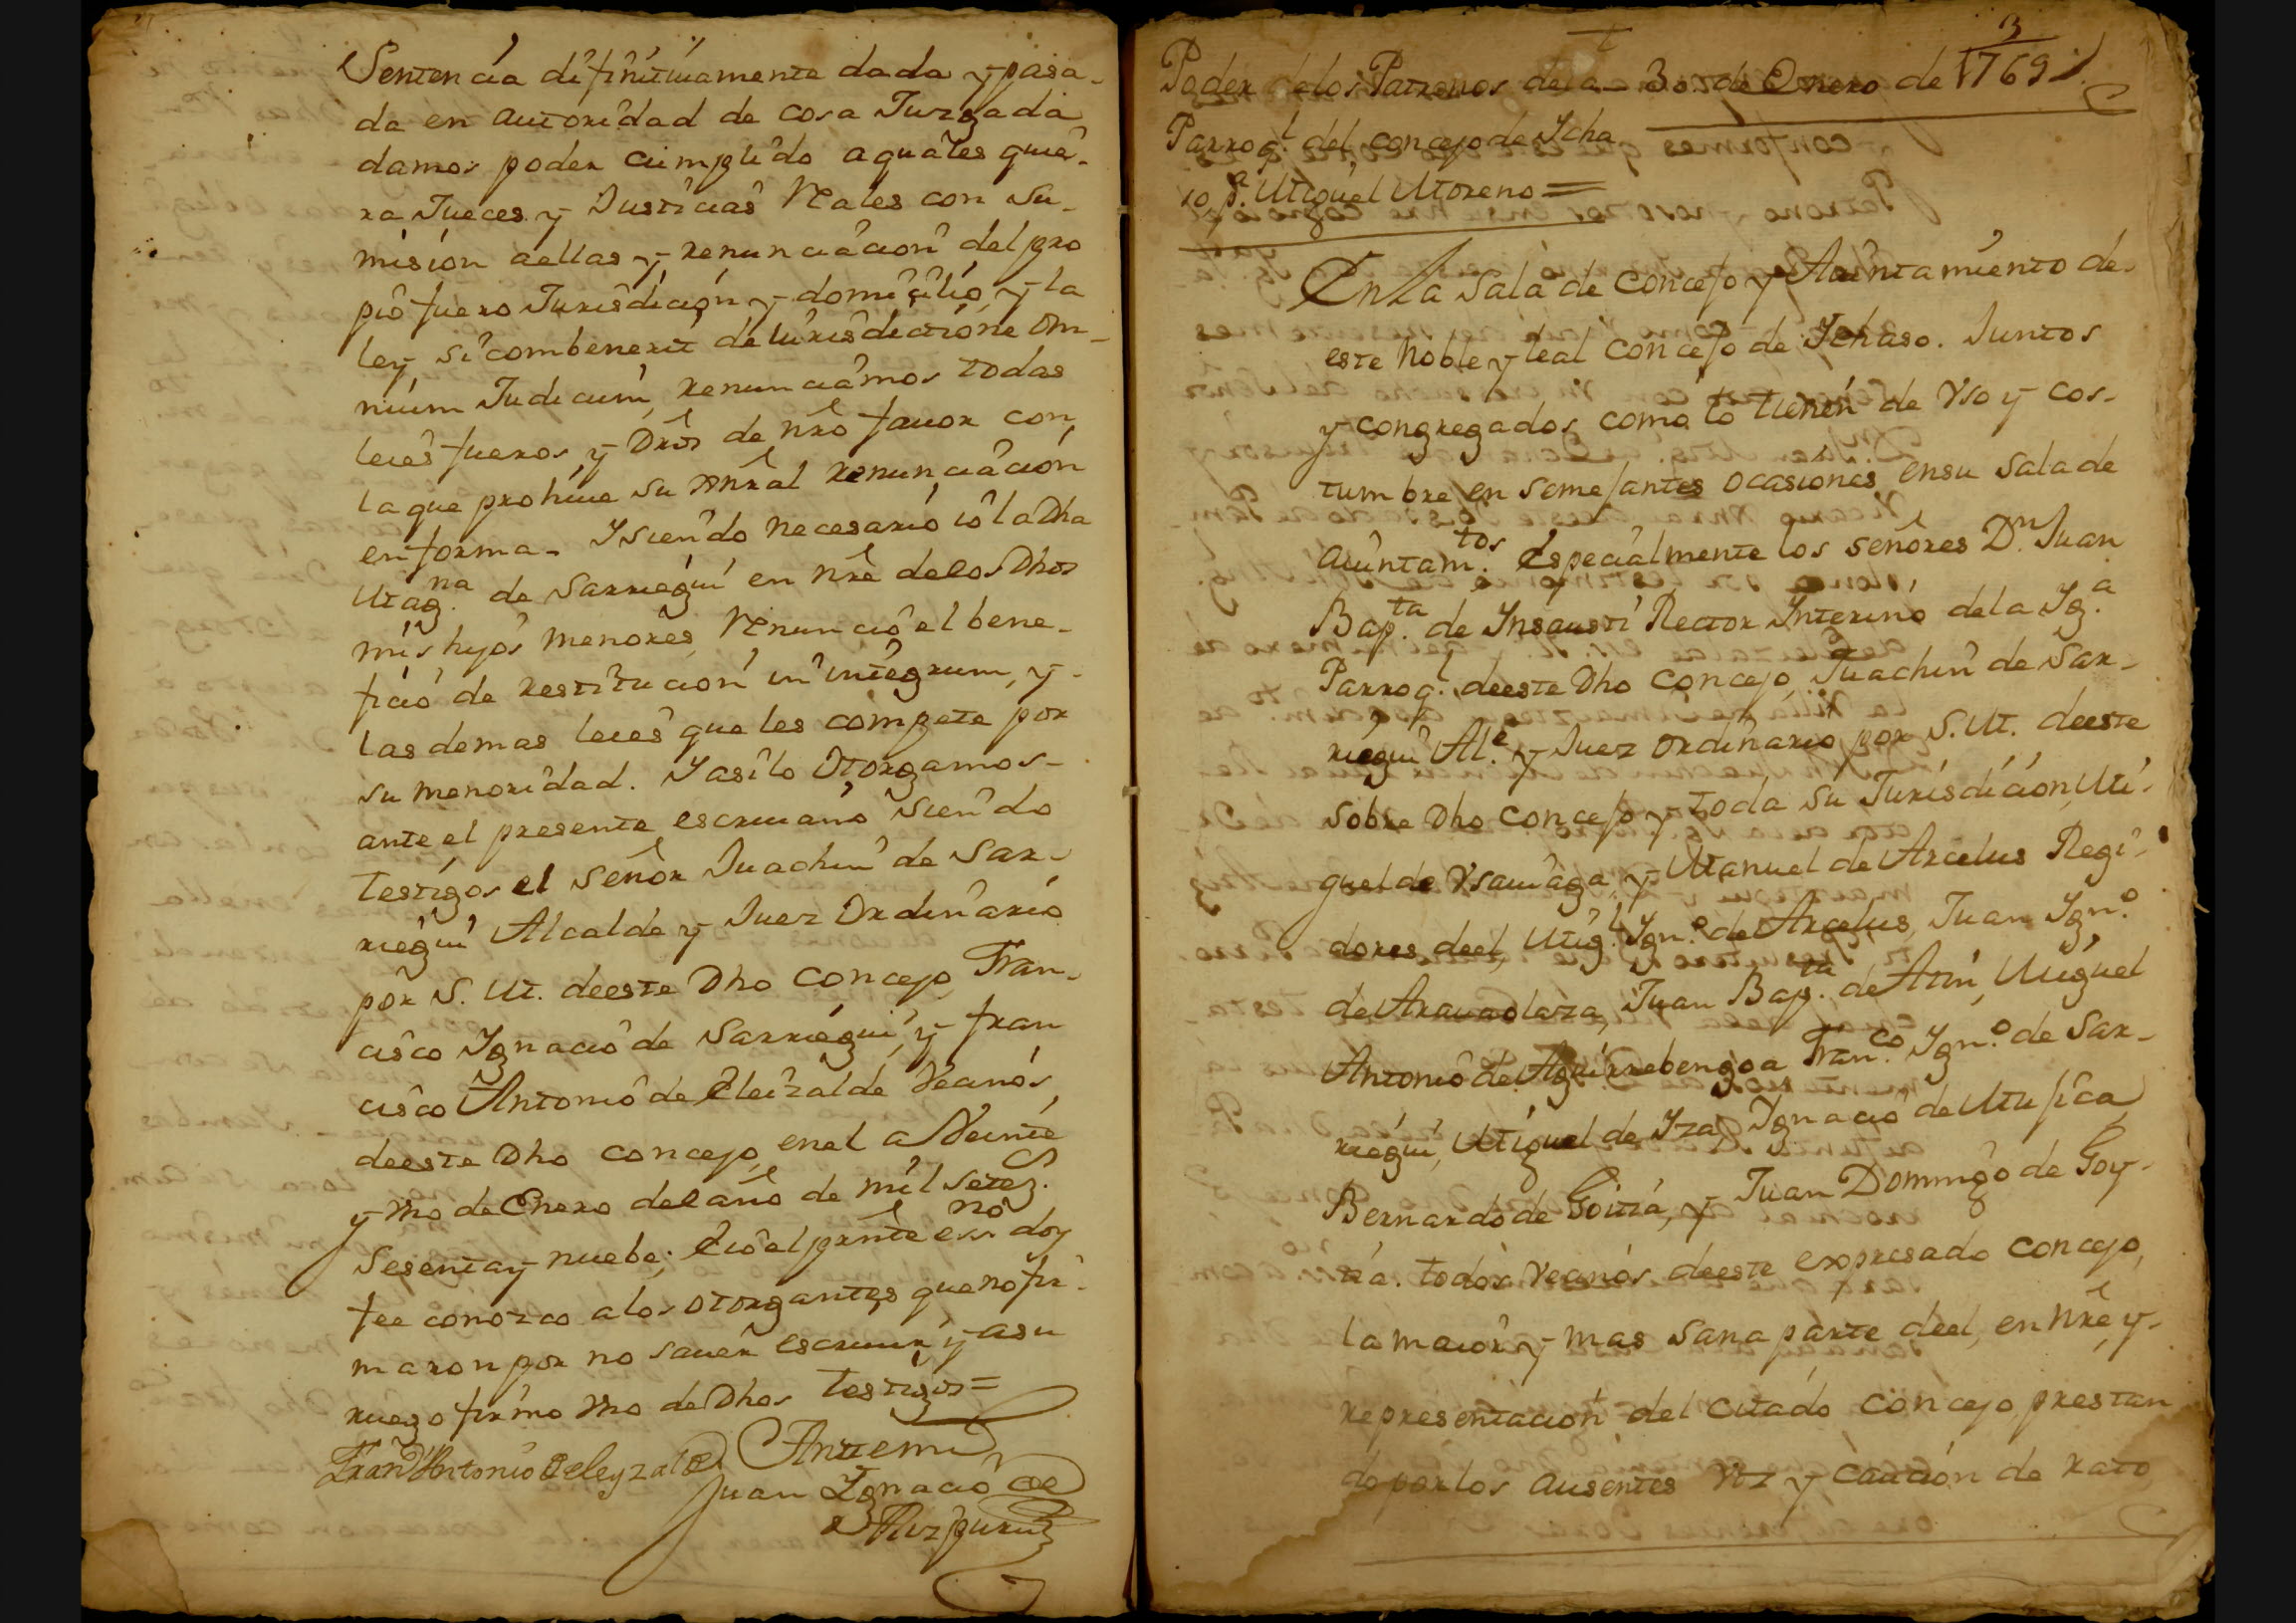 Sentencia difinitiuamente dada y pasa-
da en autoridad de cosa Juzgada
damos poder cumplido aquales quie-
ra Jueces y Justicias Reales con su-
misión aellas y renunciación del pro
pio fuero Jurisdición y domicilio, y la
ley si combenerit de Iurisdictióne Om-
nium Judicum, renunciamos todas
leies fueros, y Dros de nro fauor con
la que prohiue su xnral renunciación
en forma- Y siendo necesario io la Dha
Mag.na de Sarriegui en nre delos Dhos
mis hijos menores Renuncio el bene-
ficio de restitución in integrum, y
las demas leies que les compete por
su menoridad. Y asilo Otorgamos-
ante el presente escriuano siendo
testigos el señor Juachin de Sar-
riegui Alcalde y Juez Ordinario
por S. M. deeste Dho Concejo, Fran-
cisco Ignacio de Sarriegui, y fran
cisco Antonio de Eleizalde Vecinos
deeste Dho concejo, enel a Veinte
y vno de Enero del año de mil setez.s
Sesenta y nuebe; E io el prnte essno doy
fee conozco a los otorgantes que no fir-
maron por no sauer escriuir, y asu
ruego firmo vno de Dhos testigos=
Fran.co Antonio de eleyzalde Antemi
Juan Ignacio de
Aizpuru
13
Poder delos Patronos dela 30. de Enero de 1769
Parroq.l del concejo de Ycha
so p.a Miguel Moreno=
En La Sala de Concejo y Aiuntamiento de
este Noble y leal Concejo de Ychaso. Juntos
y congregados como lo tienen de Vso y cos-
tumbre en semejantes ocasiones ensu Sala de
Aiuntam.tos Especialmente los señores D.n Juan
Bap.ta de Ynsausti Rector Ynterino dela Yg.a
Parroq.l deeste Dho Concejo, Juachin de Sar-
riegui Al.e y Juez Ordinario por S. M. deeste
sobre Dho Concejo y toda su Jurisdición, Mi-
guel de Vsauiaga, y Manuel de Arcelus Regi-
dores deel, Mig.l Ygn.o de Arcelus, Juan Ygn.o
de Arauaolaza, Juan Bap.ta de Atin, Miguel
Antonio de Aguirrebengoa Fran.co Ygn.o de Sar-
riegui, Miguel de Yza, Ygnacio de Mujica
Bernardo de Goitia, y Juan Domingo de Goy-
tia. todos Vecinos deeste expresado concejo,
la maior y mas sana parte deel, en nre y-
representación del citado concejo, prestan
do por los ausentes Voz y Caución de rato